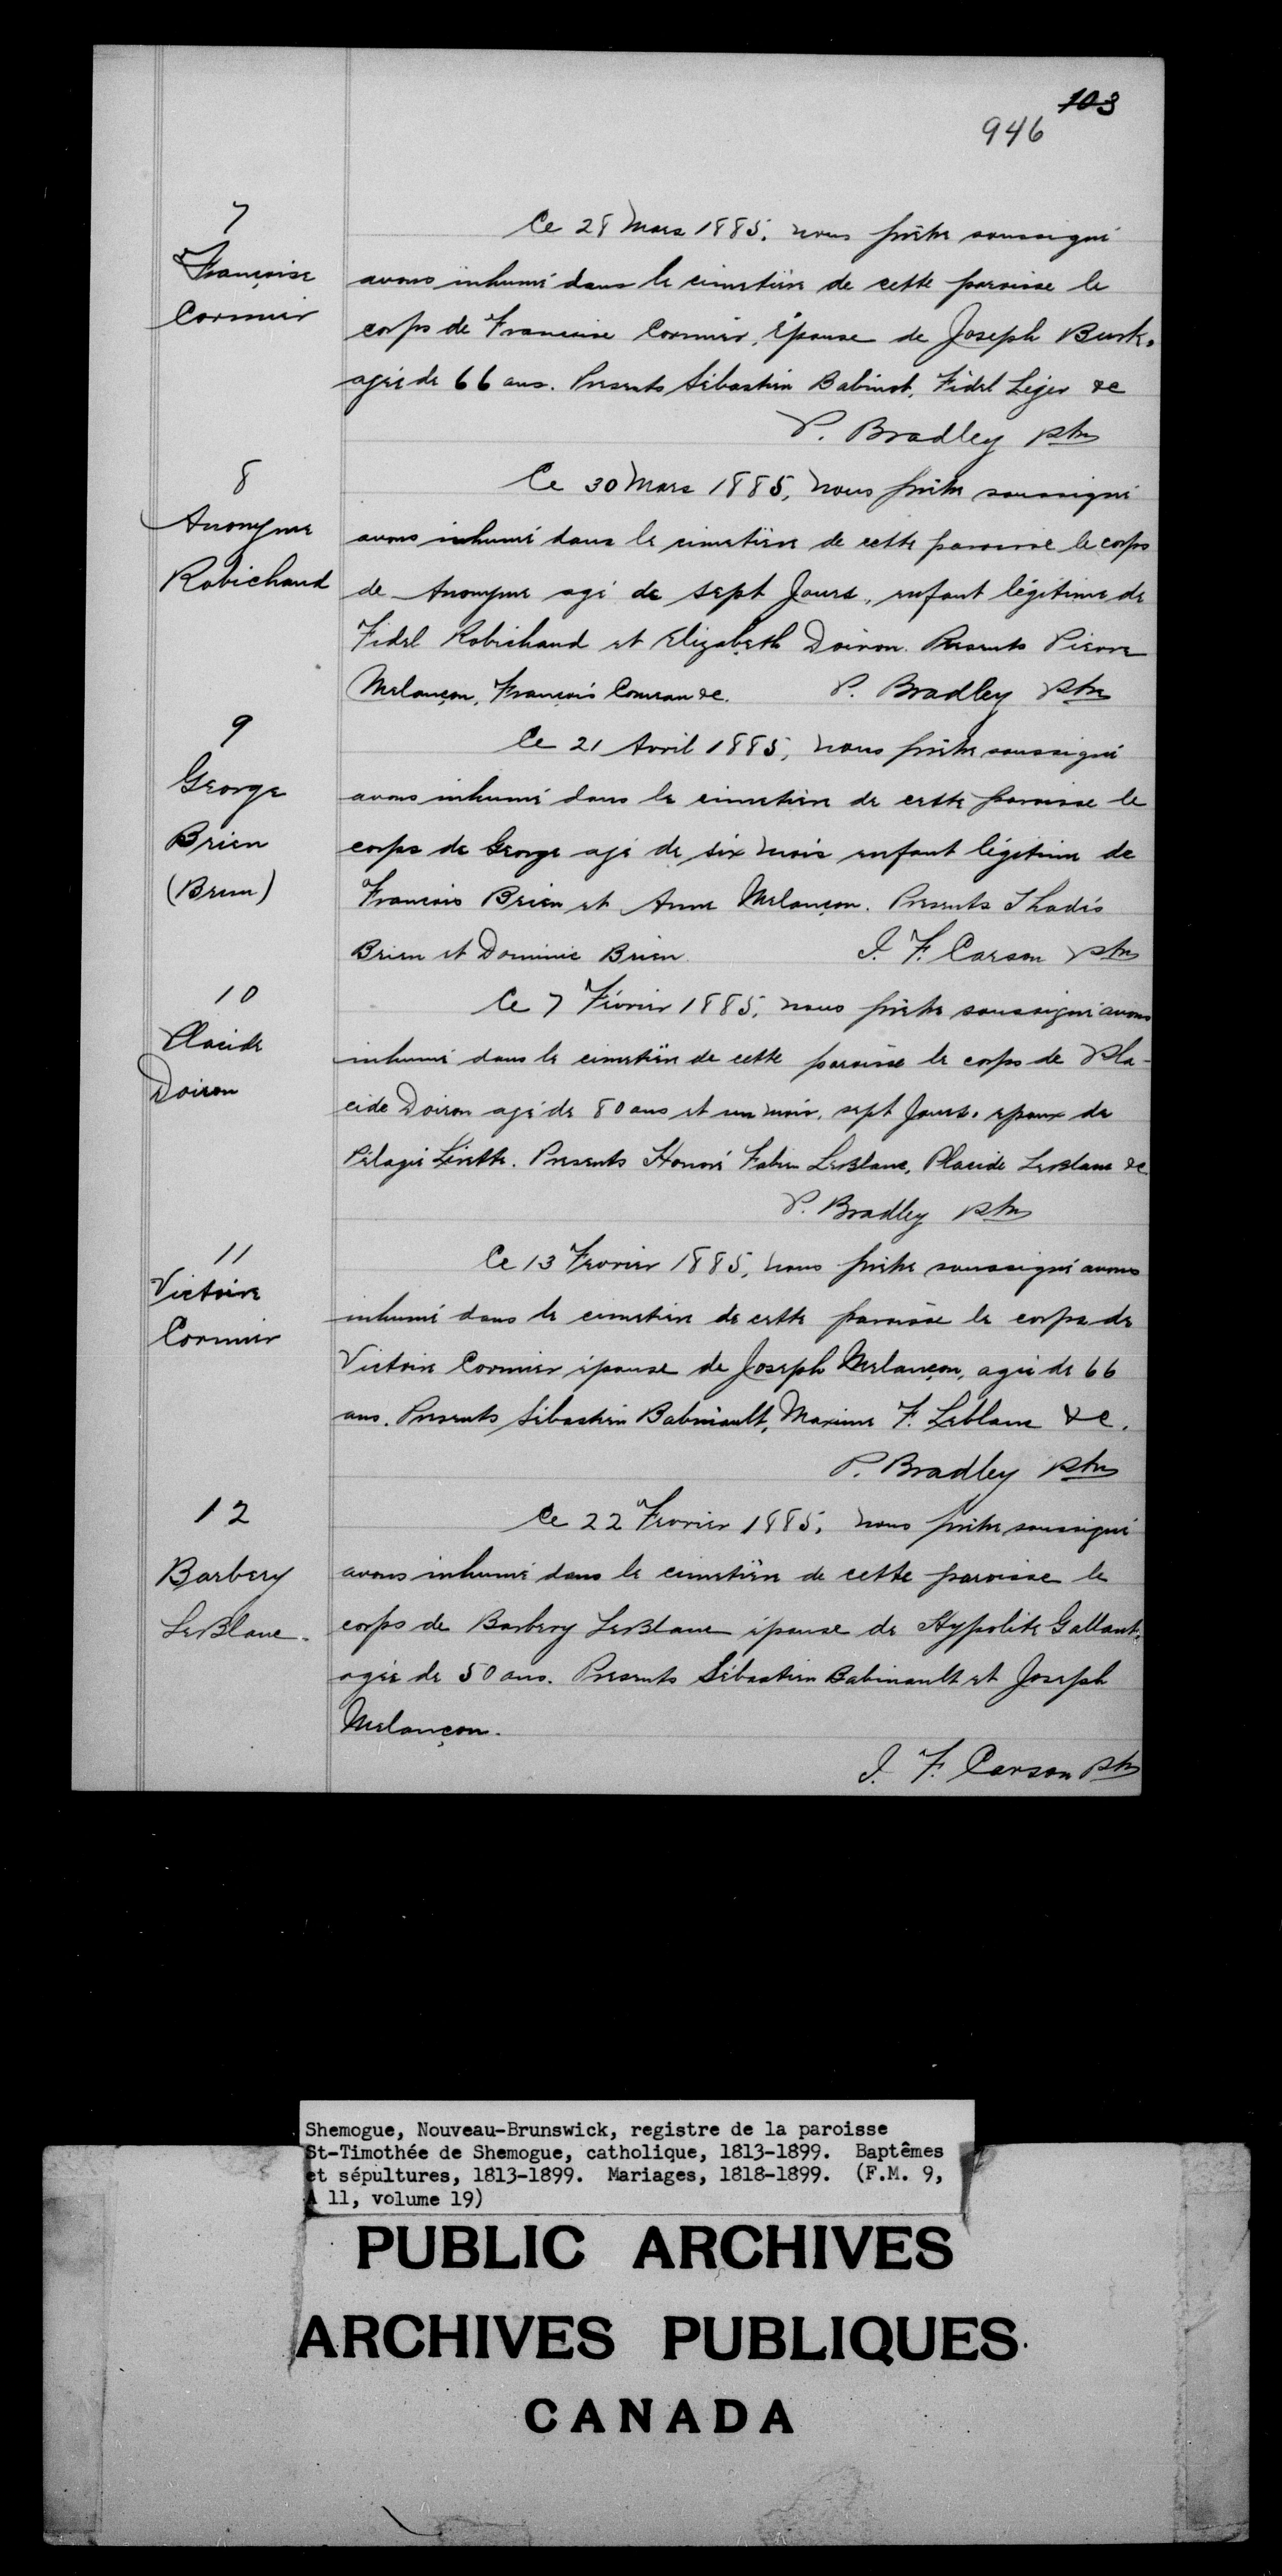 103
946
7
Françoise
Cormier
Ce 28 Mars 1885, nous prêtre soussigné
avons inhumé dans le cimetière de cette paroisse le
corps de Francoise Cormier, Épouse de Joseph Burk,
agée de 66 ans. Presents Sébastien Babinot, Fidel Léger &c
P. Bradley ptre
8
Anonyme
Robichaud
Ce 30 Mars 1885, nous prêtre soussigné
avons inhumé dans le cimetière de cette paroisse le corps
de Anonyme agé de sept Jours, enfant légitime de
Fidel Robichaud et Elizabeth Doiron. Presents Pierre
Melançon, François &c. P. Bradley Ptre
9
George
Brien
(Brun)
Ce 21 Avril 1885, nous prêtre soussigné
avons inhumé dans le cimetière de cette paroisse le
corps de George agé de six mois enfant légitime de
Francois Brien et Anne Melançon. Presents Thadés
Brien et Dominic Brien. J. F. Carson ptre
10
Placide
Doiron
Ce 7 Février 1885, nous prêtre soussigné avons
inhumé dans le cimetière de cette paroisse le corps de Pla-
cide Doiron agé de 80 ans et un mois, sept Jours, epoux de
Pélagie Lirette. Presents Honoré Fabien LeBlanc, Placide LeBlanc &c
P. Bradley ptre
11
Victoire
Cormier
Ce 13 Fevrier 1885, nous prêtre soussigné avons
inhumé dans le cimetière de cette paroisse le corps de
Victoire Cormier épouse de Joseph Melançon, agée de 66
ans. Presents Sébastien Babinault, Maxime F. Leblanc &c.
P. Bradley Ptre
12
Barbery
LeBlanc.
Ce 22 Fevrier 1885, nous prêtre soussigné
avons inhumé dans le cimetière de cette paroisse le
corps de Barbery LeBlanc épouse de Hypolite Gallant,
agée de 50 ans. Presents Sébastien Babinault et Joseph
Melançon.
J. F. Carson ptre
Shemogue, Nouveau-Brunswick, registre de la paroisse
St-Timothée de Shemogue, catholique, 1813-1899. Baptêmes
et sépultures, 1813-1899. Mariages, 1818-1899. (F.M. 9,
A 11, volume 19)
PUBLIC ARCHIVES
ARCHIVES PUBLIQUES
CANADA